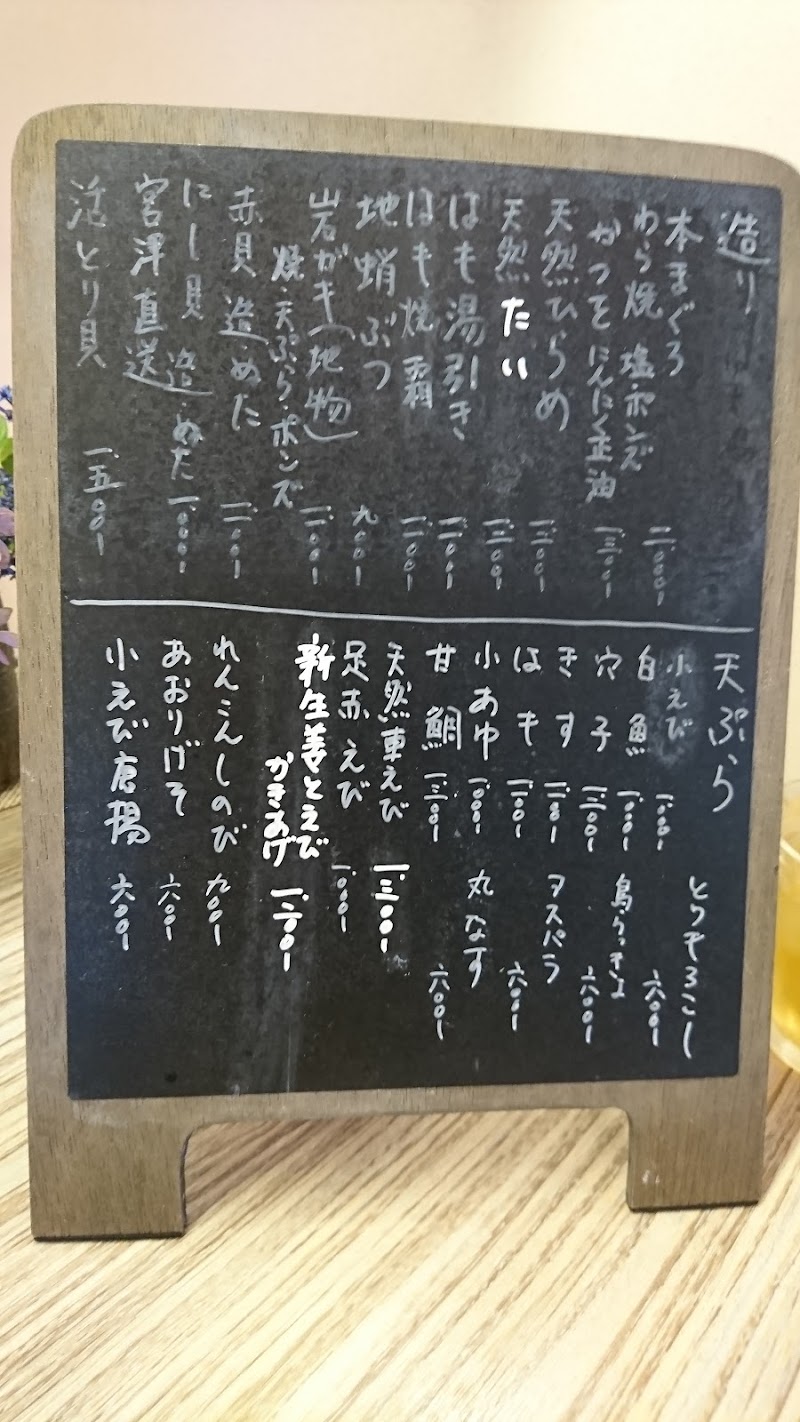 造り
本まぐろ 二、〇〇〇-
わら焼 塩・ポンズ
かつを にんにく正油 一、三〇〇-
天然ひらめ 一、三〇〇-
天然たい 一、三〇〇-
はも湯引き
はも焼霜
地蛸ぶつ 九〇〇-
岩がき(地物)
焼・天ぷら・ポンズ
赤貝 造・ぬた
にし貝 造・ぬた 一、〇〇〇-
宮津直送
活とり貝 一、五〇〇-
天ぷら
小えび
白魚 一、〇〇〇-
穴子
きす
はも
小あゆ 一、〇〇〇-
甘鯛 一、三〇〇-
天然車えび 一、三〇〇-
足赤えび 一、〇〇〇-
新生姜とえび
かきあげ 一、二〇〇-
れんこんしのび 九〇〇-
あおりげそ 六〇〇-
小えび唐揚 六〇〇-
とうもろこし 六〇〇-
島らっきょ 六〇〇-
アスパラ 六〇〇-
丸なす 六〇〇-